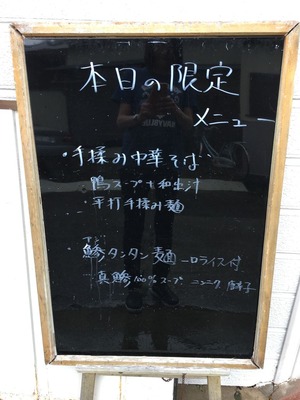 本日の限定
メニュー
・手揉み中華そば
鴨スープ+和出汁
・平打手揉み麺
アジ
・鯵タンタン麺 一口ライス付
真鯵100%スープ ニンニク 唐辛子